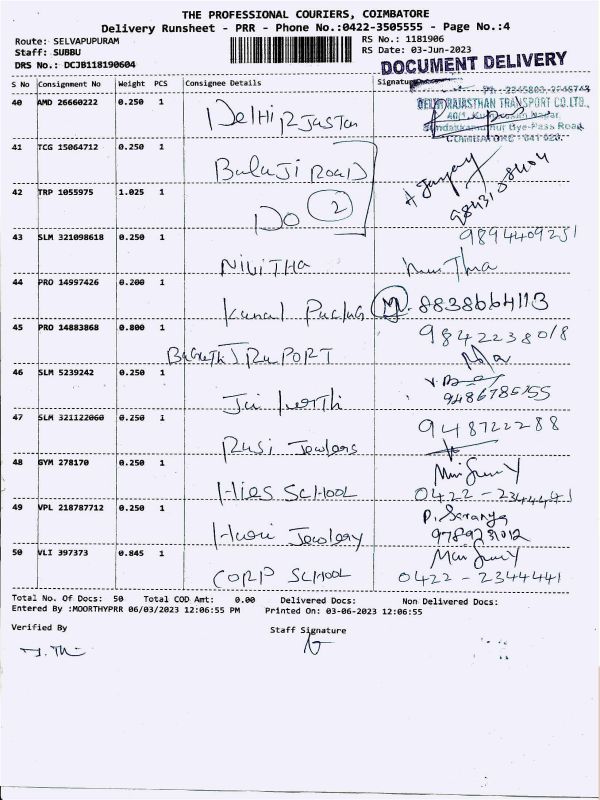 THE PROFESSIONAL COURIERS, COIMBATORE
Delivery Runsheet - PRR - Phone No.:0422-3505555 - Page No.:4
Route: SELVAPUPURAM
RS No.: 1181906
Staff: SUBBU
RS Date: 03-Jun-2023
DRS No.: DCJB118190604
DOCUMENT DELIVERY
S No Consignment No Weight PCS Consignee Details Signature
40 AMD 26660222 0.250 1
DELHI RAJASTHAN TRANSPORT CO. LTD.,
Bye-Pass Road
Delhi RJastan
41 TCG 15064712 0.250 1
Balaji Road
42 TRP 1055975 1.025 1
DO 2
43 SLM 321098618 0.250 1 9894409251
NIVITHA
44 PRO 14997426 0.200 1
8838664113
45 PRO 14883868 0.800 1 9842238018
46 SLM 5239242 0.250 1
9486786155
Jai
47 SLM 321122060 0.250 1 948722288
Rusi Jewlers
48 GYM 278170 0.250 1
Hies School 0422-2344441
49 VPL 218787712 0.250 1 P. Saranya
Jewelery
50 VLI 397373 0.845 1
CORP SCHOOL 0422-2344441
Total No. Of Docs: 50 Total COD Amt: 0.00 Delivered Docs: Non Delivered Docs:
Entered By :MOORTHYPRR 06/03/2023 12:06:55 PM Printed On: 03-06-2023 12:06:55
Verified By
Staff Signature